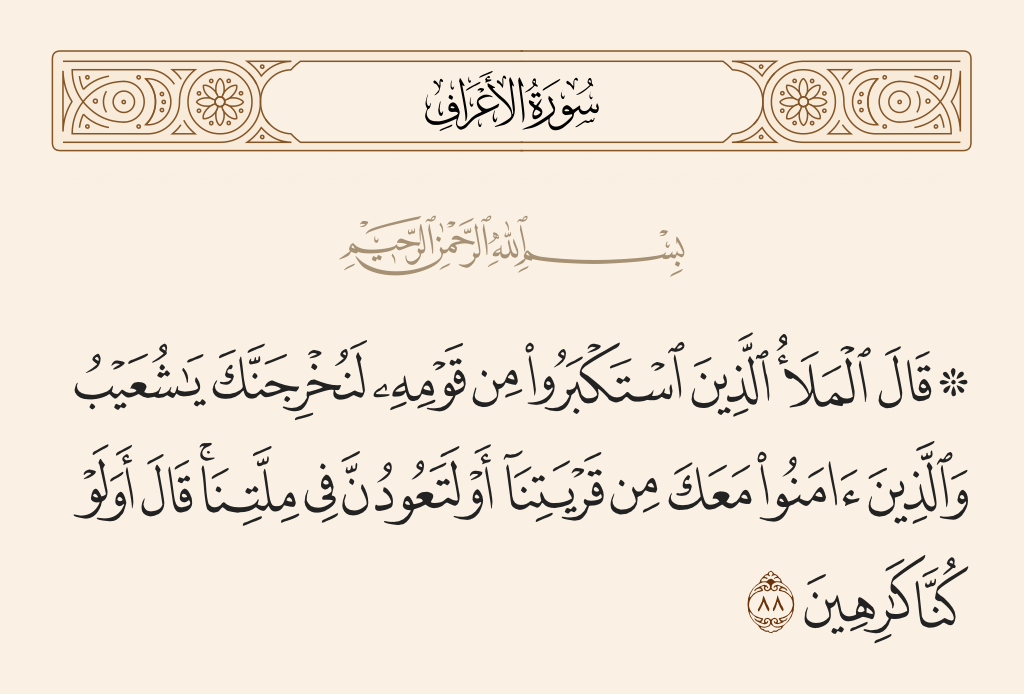 سُورَةُ الأَعْرَافِ
بِسْمِ ٱللَّهِ ٱلرَّحْمَٰنِ ٱلرَّحِيمِ
۞ قَالَ ٱلْمَلَأُ ٱلَّذِينَ ٱسْتَكْبَرُوا۟ مِن قَوْمِهِۦ لَنُخْرِجَنَّكَ يَٰشُعَيْبُ
وَٱلَّذِينَ ءَامَنُوا۟ مَعَكَ مِن قَرْيَتِنَآ أَوْ لَتَعُودُنَّ فِى مِلَّتِنَا ۚ قَالَ أَوَلَوْ
كُنَّا كَٰرِهِينَ ٨٨